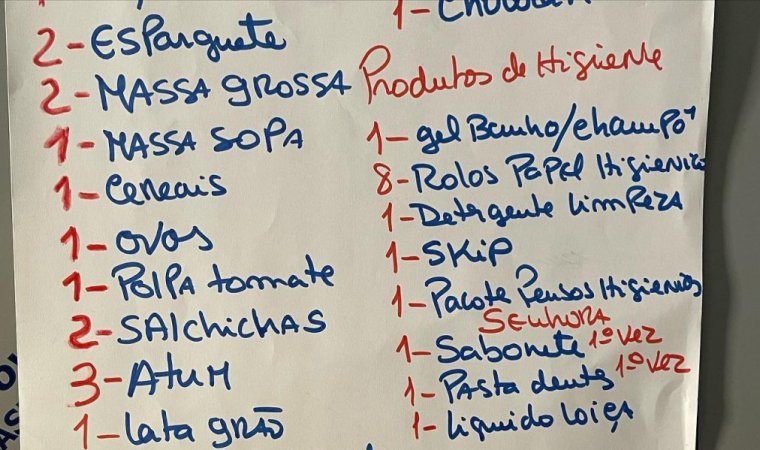 2-ESPARguete
2-MASSA gROSSA
1-MASSA SOPA
1-Cereais
1-OVOS
1-POlPA tomate
2-SAlchichAS
3-AtuM
1-lata gRÃO
1-
Produtos de Higiene
1-gel Banho/champô
8-Rolos Papel Higienico
1-Detergente limpeza
1-SKip
1-Pacote Pensos Higienicos
SENHORA
1-Sabonete 1º vez
1-Pasta dents 1º vez
1-liquido loiça